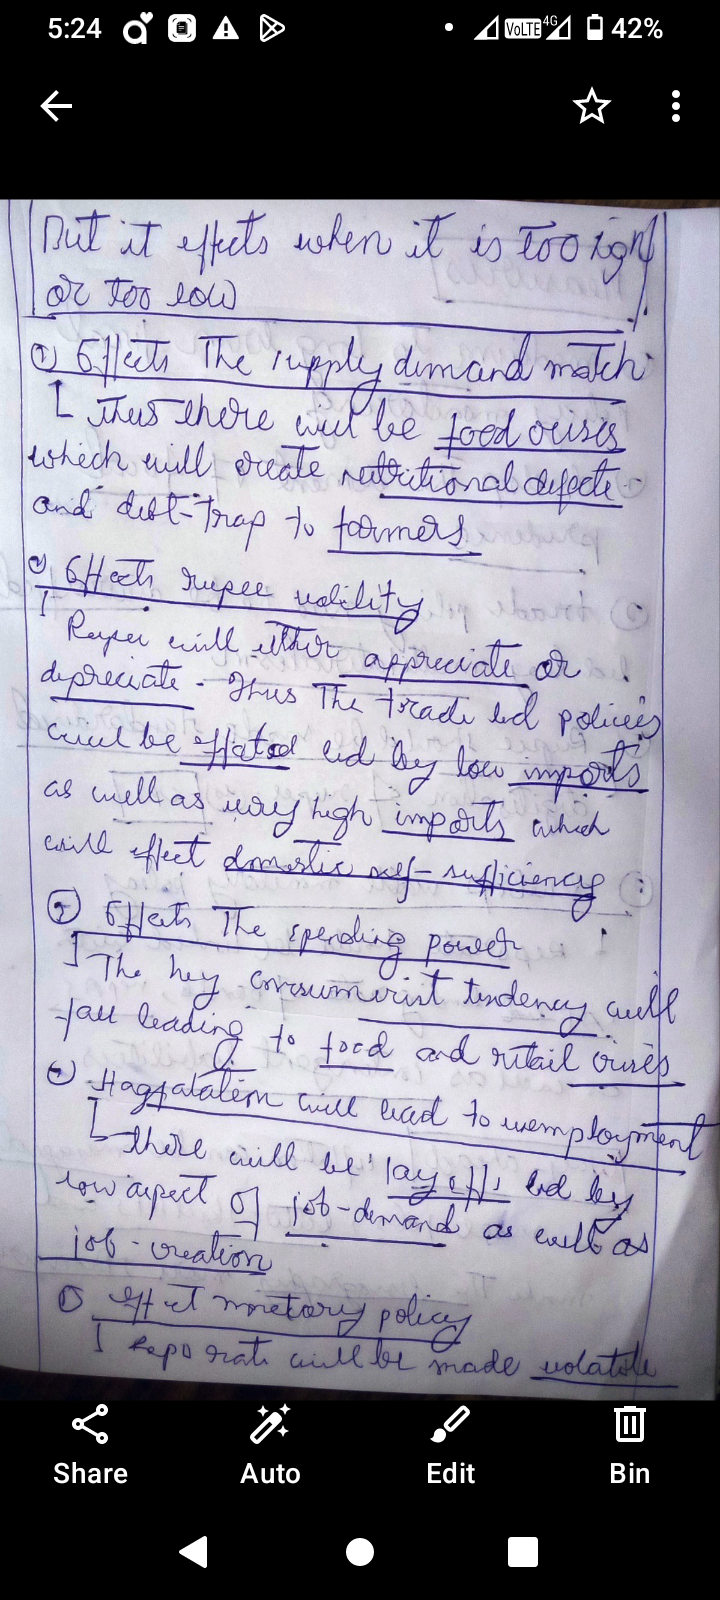 5:24
VoLTE 4G 42%
But it effects when it is too high
or too low
① Effects the supply demand match
Thus there will be food crises
which will create nutritional defects
and debt-trap to farmers
Effects rupee volility
Rupee will either appreciate or
depreciate. Thus the trade led policies
will be effected led by low imports
as well as very high imports which
will effect domestic self-sufficiency
Effects the spending power
The key consumerist tendency will
fall leading to food and retail crises
will lead to unemployment
there will be layoffs led by
low aspect of job-demand as well as
job-creation
effect monetory policy
Repo rate will be made volatile
Share Auto Edit Bin